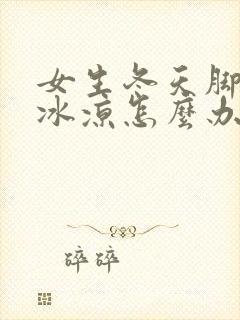 女生冬天脚
冰凉怎麼办
碎碎